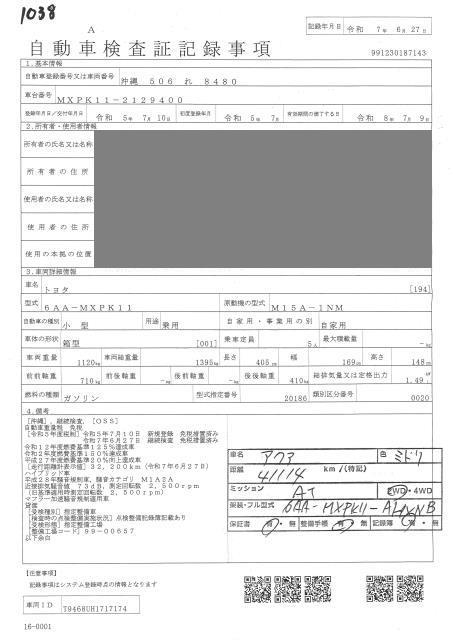 1038
A
自動車検査証記録事項
記録年月日 令和 7年 6月27日
991230187143
1.基本情報
自動車登録番号又は車両番号 沖縄 506 れ 8480
車台番号 MXPK11-2129400
登録年月日/交付年月日 令和 5年 7月10日 初度登録年月 令和 5年 7月 有効期間の満了する日 令和 8年 7月 9日
2.所有者・使用者情報
所有者の氏名又は名称
所有者の住所
使用者の氏名又は名称
使用者の住所
使用の本拠の位置
3.車両詳細情報
車名 トヨタ [194]
型式 6AA-MXPK11 原動機の型式 M15A-1NM
自動車の種別 小型 用途 乗用 自家用・事業用の別 自家用
車体の形状 箱型 [001] 乗車定員 5人 最大積載量 -kg
車両重量 1120kg 車両総重量 1395kg 長さ 405cm 幅 169cm 高さ 148cm
前前軸重 710kg 前後軸重 -kg 後前軸重 -kg 後後軸重 410kg 総排気量又は定格出力 1.49L
燃料の種類 ガソリン 型式指定番号 20186 類別区分番号 0020
4.備考
[沖縄], 継続検査, [OSS]
自動車重量税 免税
[令和5年度税制] 令和5年7月10日 新規登録 免税措置済み
令和7年6月27日 継続検査 免税措置済み
令和12年度燃費基準125%達成車
令和2年度燃費基準150%達成車
平成27年度燃費基準20%向上達成車
[走行距離計表示値] 32,200km (令和7年6月27日)
ハイブリッド車
平成28年騒音規制車, 騒音カテゴリ M1A2A
近接排気騒音値 73dB, 測定回転数 2,500rpm
(旧基準適用時測定回転数 2,500rpm)
マフラー加速騒音規制適用車
[受検種別] 指定整備車
[検査時の点検整備実施状況] 点検整備記録簿記載あり
[受検形態] 指定整備工場
[整備工場コード] 99-00657
以下余白
車名 アクア 色 ミドリ
距離 41114 km/(特記)
ミッション AT 2WD・4WD
架装・フル型式 6AA-MXPK11-AHXNB
保証書 有・無 整備手帳 有・無 記録簿 有・無
【注意事項】
記録事項はシステム登録時点の情報となります
車両ID T9468UH1717174
16-0001